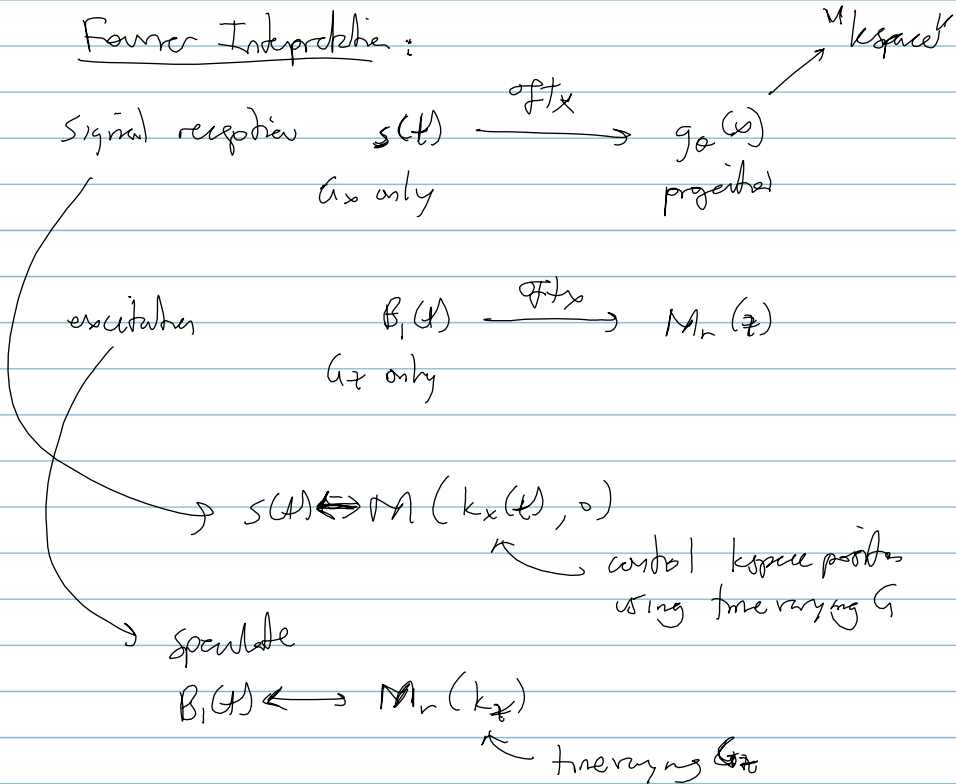 Fourier Interpretation:
"kspace"
signal reception s(t) ℱx → gθ(x)
Gx only projection
excitation B1(t) ℱx → Mr(z)
Gz only
s(t) ⇔ M(kx(t), 0)
control kspace position
using time varying G
speculate
B1(t) ↔ Mr(kz)
time varying Gz